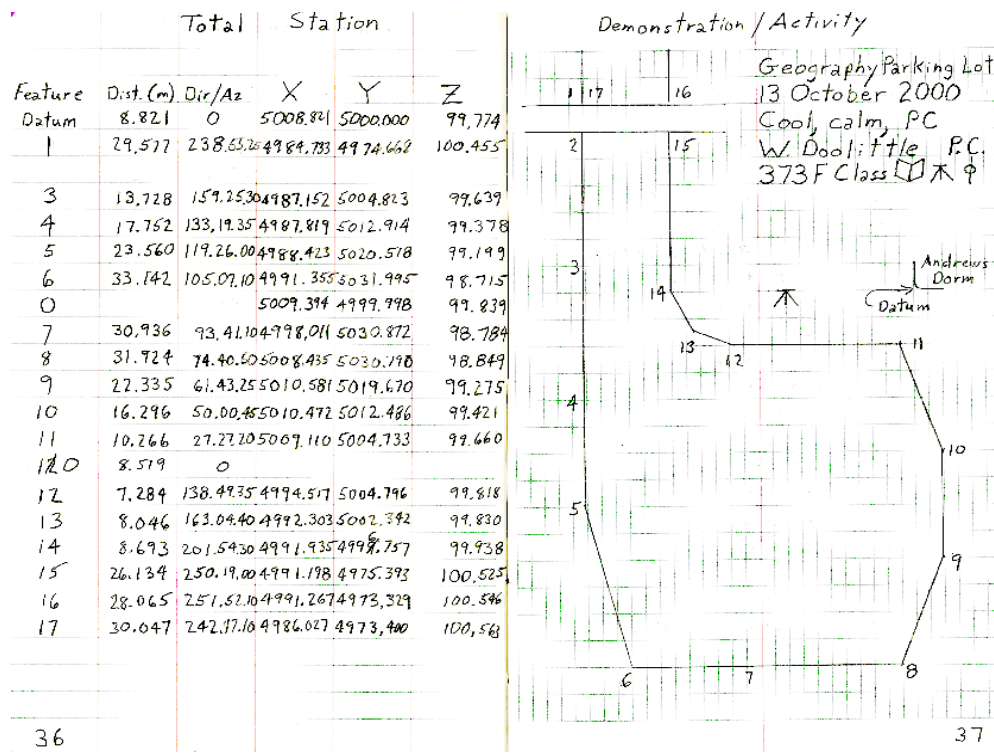 Total Station
Feature Dist. (m) Dir/Az X Y Z
Datum 8.821 0 5008.821 5000.000 99.774
1 29.577 238.53.25 4984.733 4974.668 100.455
3 13.728 159.25.30 4987.152 5004.823 99.639
4 17.752 133.19.35 4987.819 5012.914 99.378
5 23.560 119.26.00 4988.423 5020.518 99.199
6 33.142 105.07.10 4991.355 5031.995 98.715
0 5009.394 4999.998 99.839
7 30.936 93.41.10 4998.011 5030.872 98.784
8 31.924 74.40.50 5008.435 5030.790 98.849
9 22.335 61.43.25 5010.581 5019.670 99.275
10 16.296 50.00.45 5010.472 5012.486 99.421
11 10.266 27.27.20 5009.110 5004.733 99.660
0 8.519 0
12 7.284 138.49.35 4994.517 5004.796 99.818
13 8.046 163.04.40 4992.303 5002.342 99.830
14 8.693 201.54.30 4991.935 4996.757 99.938
15 26.134 250.19.00 4991.198 4975.393 100.525
16 28.065 251.52.10 4991.267 4973.329 100.546
17 30.047 242.17.10 4986.027 4973.400 100.563
36
Demonstration / Activity
Geography Parking Lot
13 October 2000
Cool, calm, PC
W. Doolittle P.C.
373F Class
1 17 16
2 15
3
Andrews
Dorm
14
Datum
13 12 11
4
10
5
9
6 7 8
37